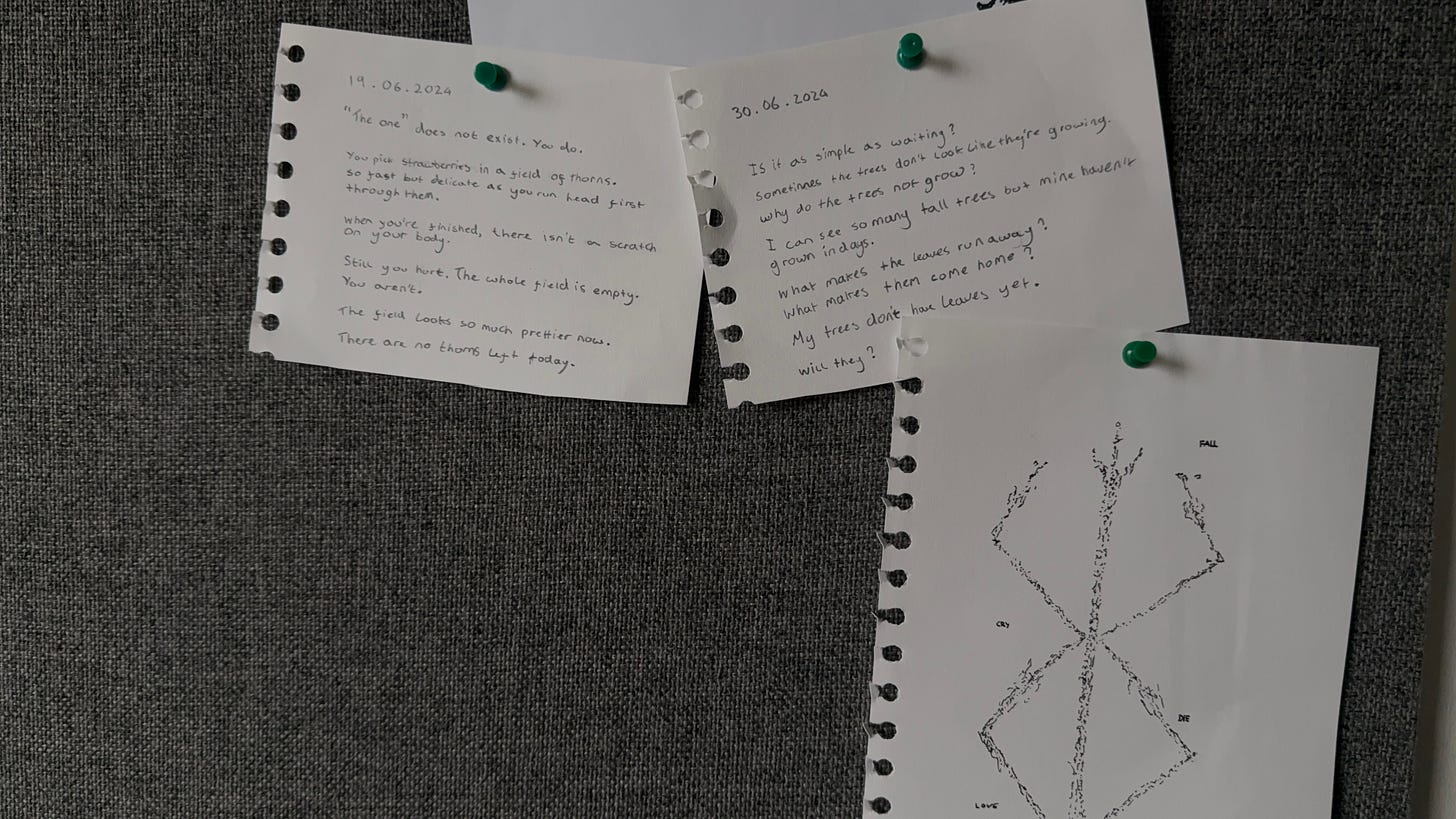 19.06.2024
"The one" does not exist. You do.
You pick strawberries in a field of thorns.
so fast but delicate as you run head first
through them.
when you're finished, there isn't a scratch
on your body.
Still you hurt. The whole field is empty.
You aren't.
The field looks so much prettier now.
There are no thorns left today.
30.06.2024
Is it as simple as waiting?
Sometimes the trees don't look like they're growing.
why do the trees not grow?
I can see so many tall trees but mine haven't
grown in days.
what makes the leaves run away?
what makes them come home?
My trees don't have leaves yet.
will they?
FALL
CRY
DIE
LOVE